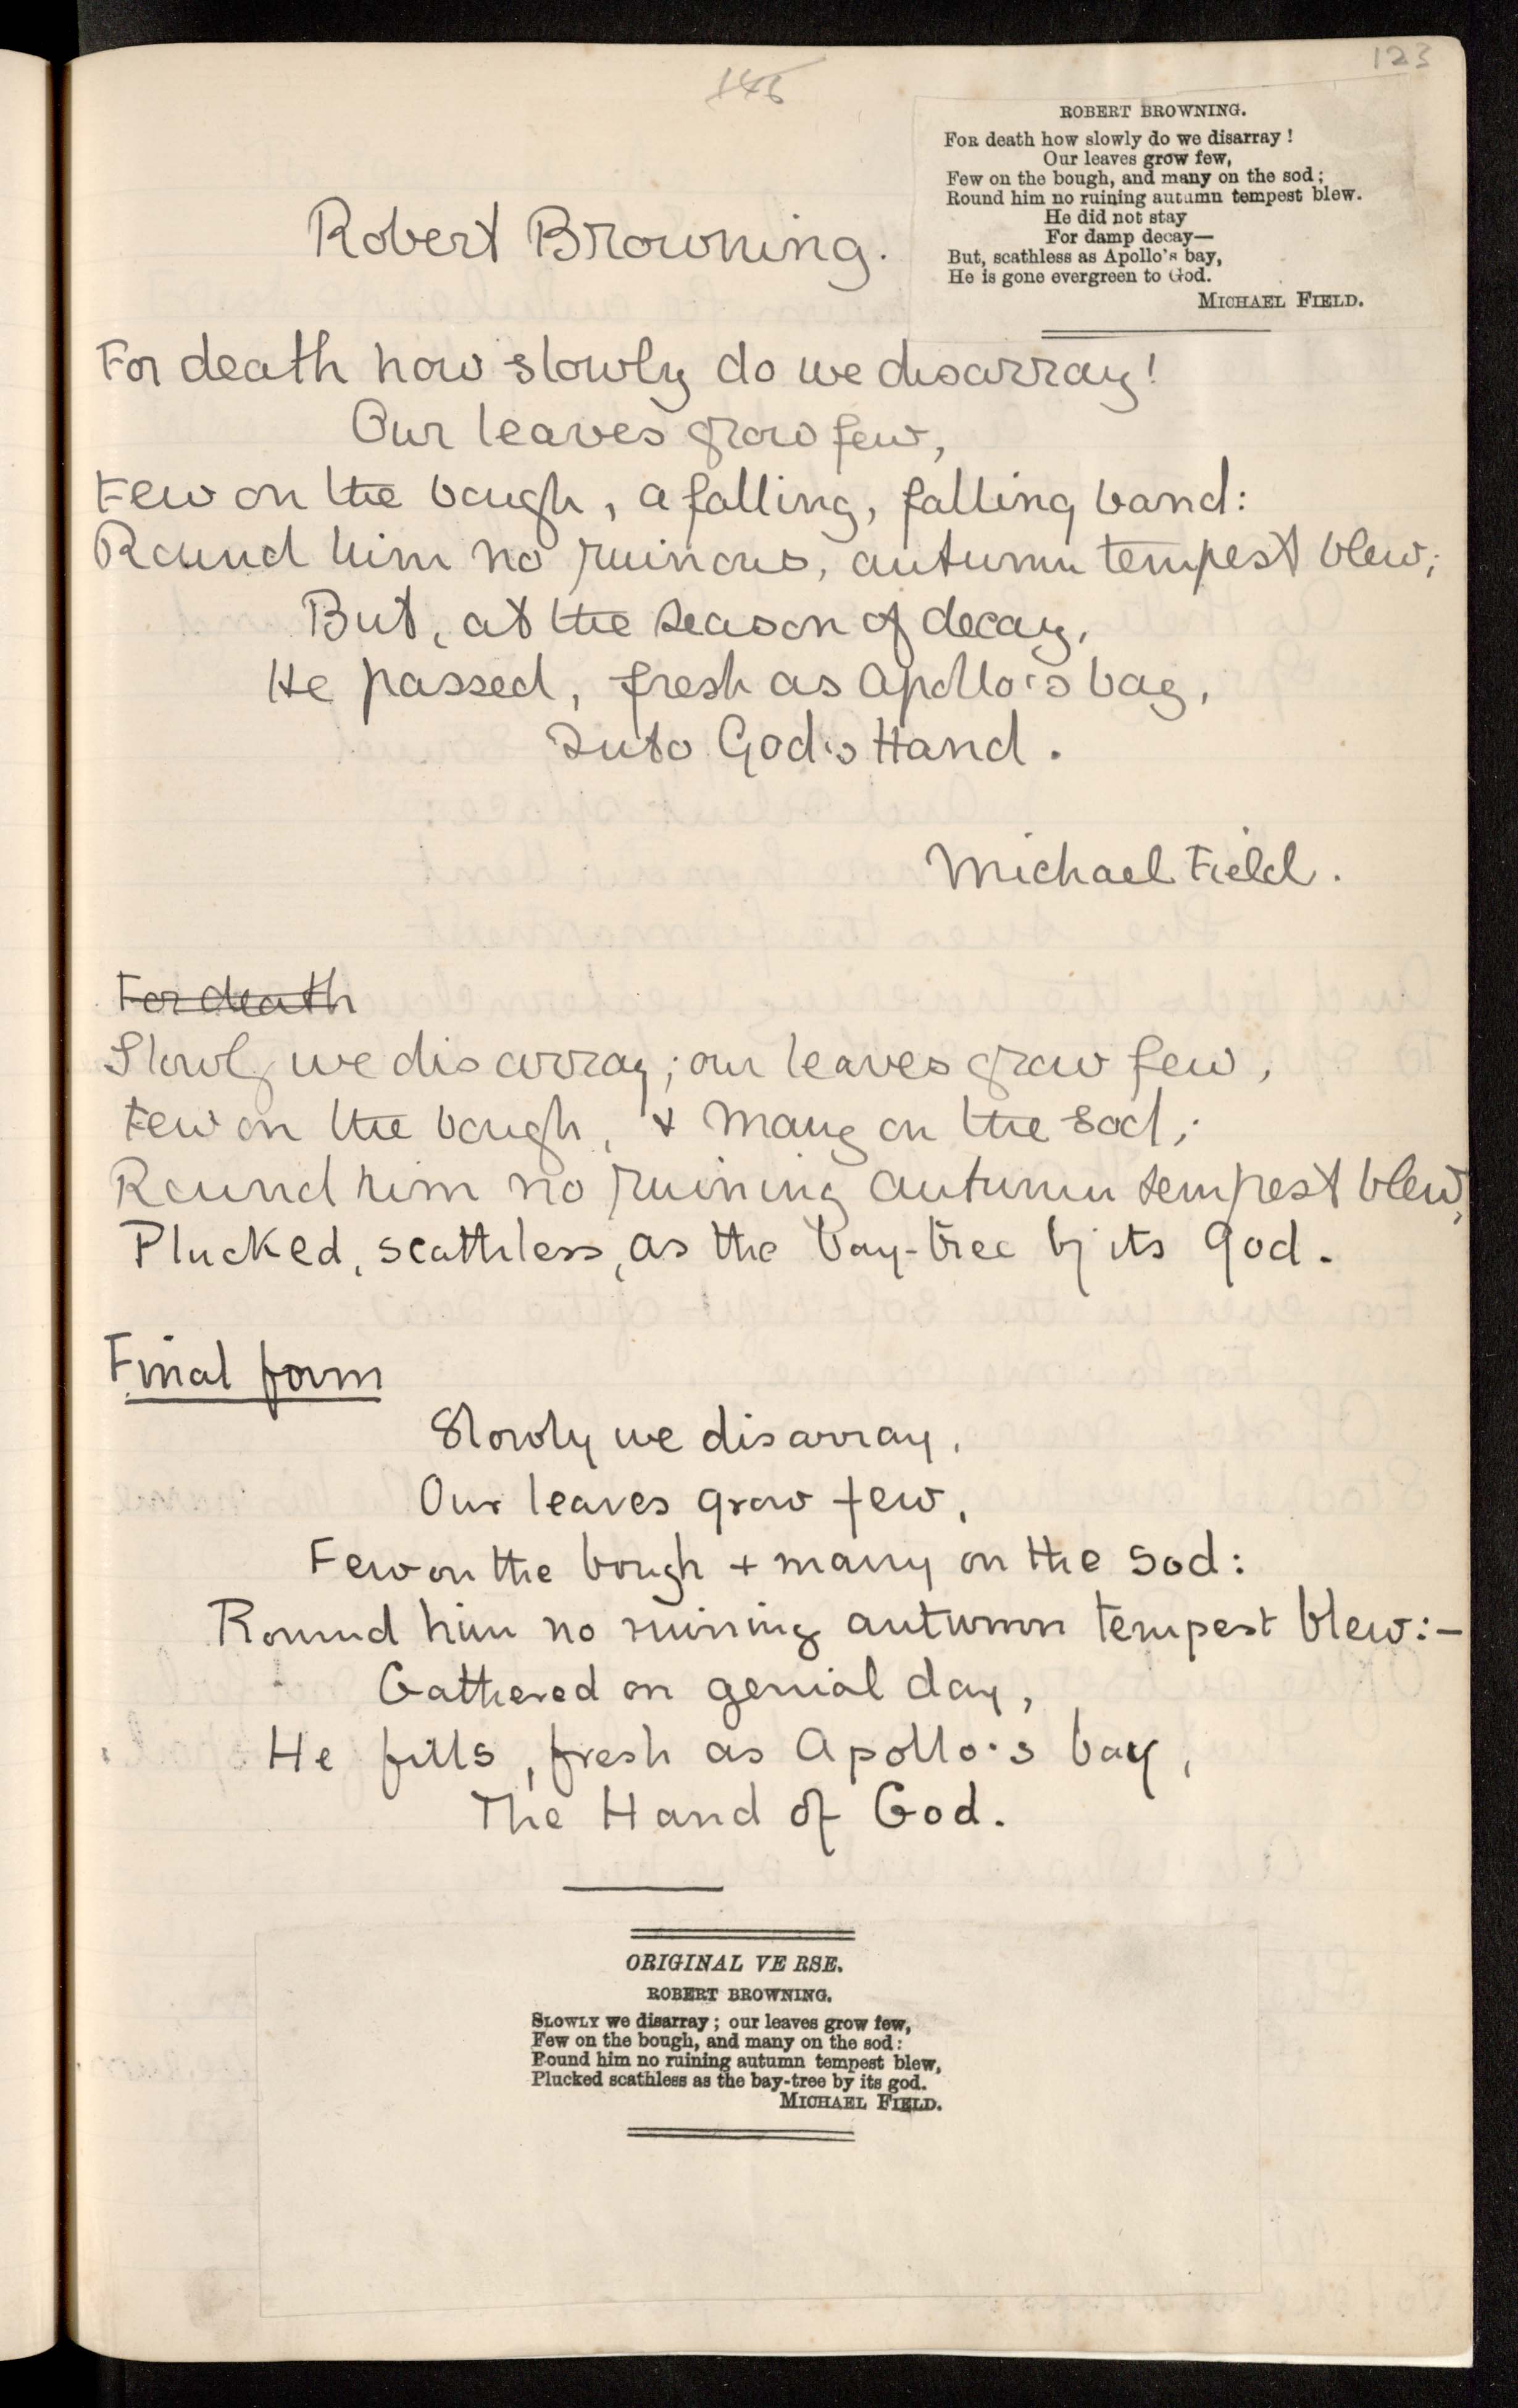 123
146
ROBERT BROWNING.
FOR death how slowly do we disarray!
Our leaves grow few,
Few on the bough, and many on the sod;
Round him no ruining autumn tempest blew.
He did not stay
For damp decay—
But, scathless as Apollo's bay,
He is gone evergreen to God.
MICHAEL FIELD.
Robert Browning.
For death how slowly do we disarray!
Our leaves grow few,
Few on the bough, a falling, falling band:
Round him no ruinous, autumn tempest blew;
But, at the season of decay,
He passed, fresh as Apollo's bay,
Into God's Hand.
Michael Field.
For death
Slowly we disarray; our leaves grow few,
Few on the bough, & many on the sod;
Round him no ruining autumn tempest blew,
Plucked, scathless, as the bay-tree by its god.
Final form
Slowly we disarray,
Our leaves grow few,
Few on the bough + many on the sod:
Round him no ruining autumn tempest blew:—
Gathered on genial day,
He fills, fresh as Apollo's bay,
The Hand of God.
ORIGINAL VE RSE.
ROBERT BROWNING.
SLOWLY we disarray; our leaves grow few,
Few on the bough, and many on the sod:
Round him no ruining autumn tempest blew,
Plucked scathless as the bay-tree by its god.
MICHAEL FIELD.